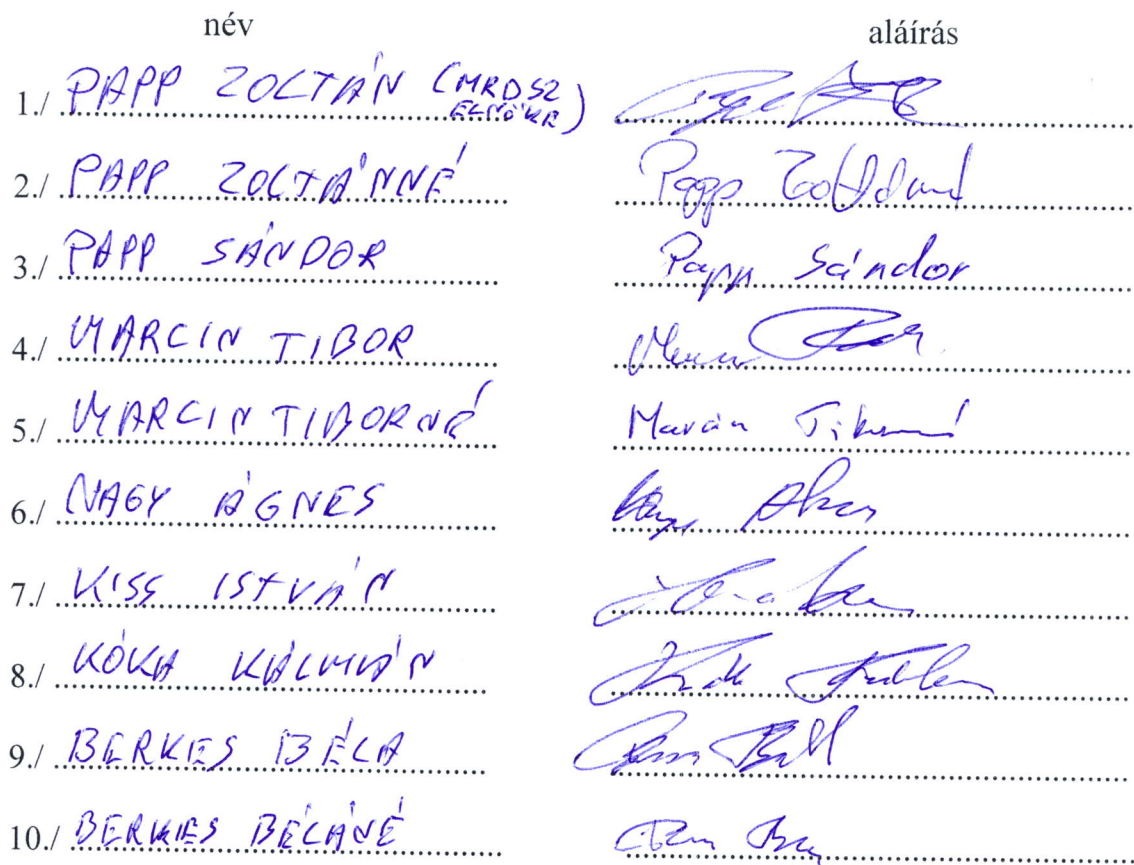 név aláírás
1./ PAPP ZOLTÁN (MRDSZ ELNÖKE)
2./ PAPP ZOLTÁNNÉ Papp Zoltánné
3./ PAPP SÁNDOR Papp Sándor
4./ MARCIN TIBOR
5./ MARCIN TIBORNÉ Marcin Tiborné
6./ NAGY ÁGNES
7./ KISS ISTVÁN
8./ KÓKA KÁLMÁN
9./ BERKES BÉLA
10./ BERKES BÉLÁNÉ